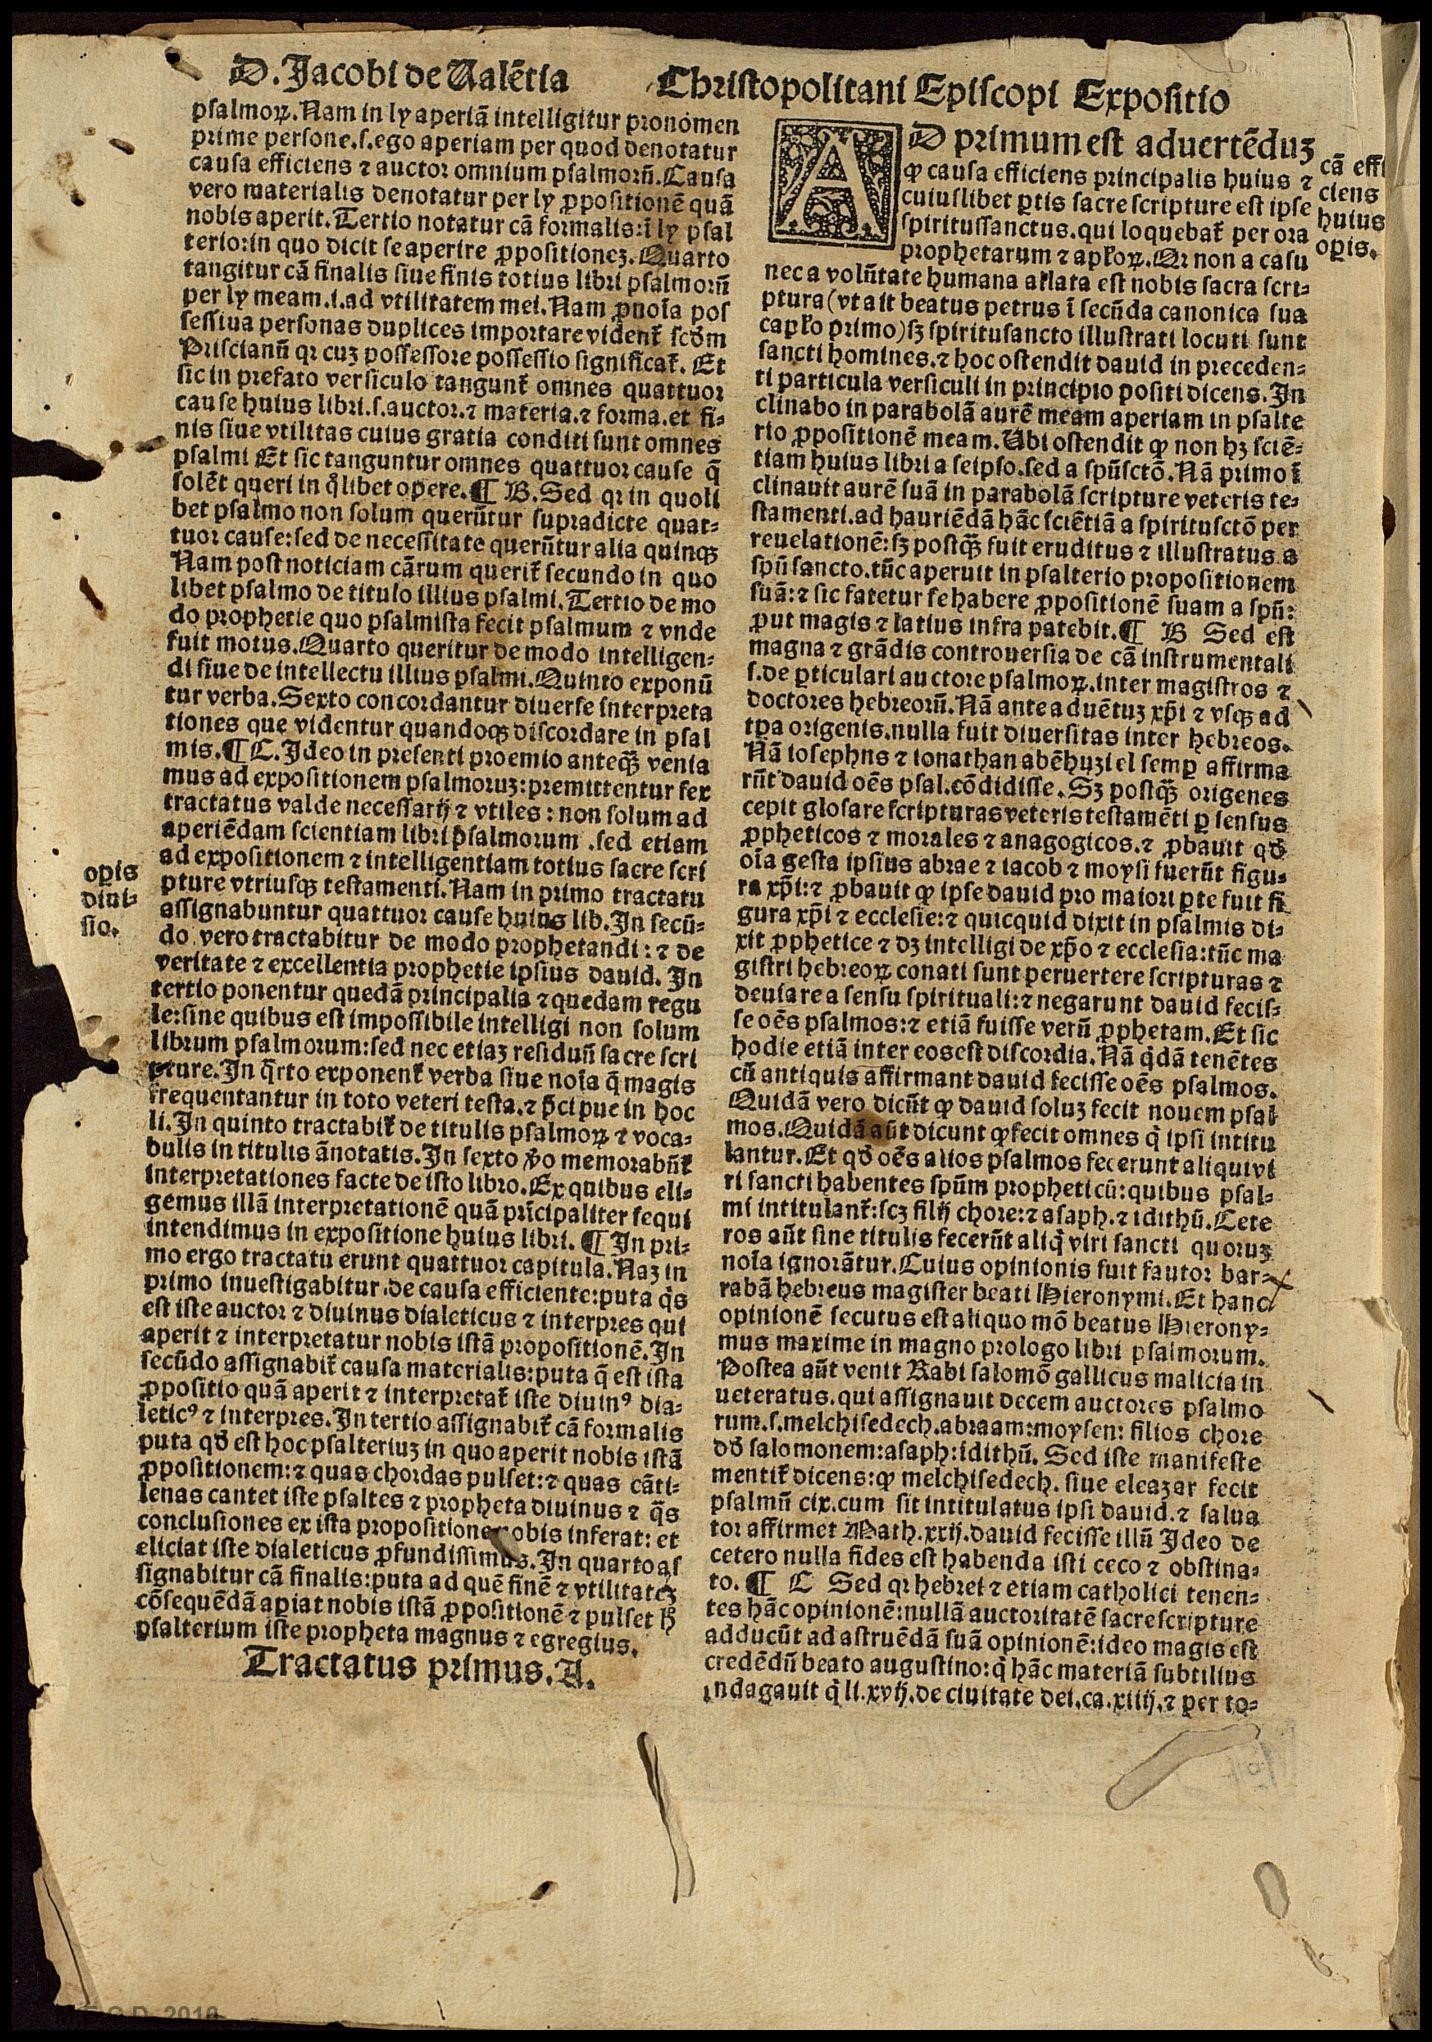 D. Jacobi de Ualẽtia Christopolitani Episcopi Expositio
psalmoꝝ. Nam in ly aperiã intelligitur pronomen
prime persone .s. ego aperiam per quod denotatur
causa efficiens ⁊ auctor omnium psalmorũ. Causa
vero materialis denotatur per ly ꝓpositionẽ quã
nobis aperit. Tertio notatur cã formalis: ĩ ly psal
terio: in quo dicit se aperire ꝓpositionez. Quarto
tangitur cã finalis siue finis totius libri psalmorũ
per ly meam .i. ad vtilitatem mei. Nam ꝓnoĩa pos
sessiua personas duplices importare videnť scḋm
Priscianũ qꝛ cuz possessore possessio significať. Et
sic in prefato versiculo tangunť omnes quattuor
cause huius libri .s. auctor. ⁊ materia. ⁊ forma. et fi-
nis siue vtilitas cuius gratia conditi sunt omnes
psalmi Et sic tanguntur omnes quattuor cause q̃
solẽt queri in q̃libet opere. ¶ B. Sed qꝛ in quoli
bet psalmo non solum querũtur supradicte quat-
tuor cause: sed de necessitate querũtur alia quinqꝫ
Nam post noticiam cãrum queriť secundo in quo
libet psalmo de titulo illius psalmi. Tertio de mo
do prophetie quo psalmista fecit psalmum ⁊ vnde
fuit motus. Quarto queritur de modo intelligen-
di siue de intellectu illius psalmi. Quinto exponũ
tur verba. Sexto concordantur diuerse interpreta
tiones que videntur quandoqꝫ discordare in psal
mis. ¶ C. Ideo in presenti proemio anteqꝫ̃ venia
mus ad expositionem psalmoruz: premittentur sex
tractatus valde necessarij ⁊ vtiles: non solum ad
aperiẽdam scientiam libri psalmorum . sed etiam
ad expositionem ⁊ intelligentiam totius sacre scri
pture vtriusqꝫ testamenti. Nam in primo tractatu
assignabuntur quattuor cause huius lib. In secũ-
do vero tractabitur de modo prophetandi: ⁊ de
veritate ⁊ excellentia prophetie ipsius dauid. In
tertio ponentur quedã principalia ⁊ quedam regu
le: sine quibus est impossibile intelligi non solum
librum psalmorum: sed nec etiaz residuũ sacre scri
pture. In q̃rto exponenť verba siue noĩa q̃ magis
frequentantur in toto veteri testa. ⁊ p̃cipue in hoc
li. In quinto tractabiť de titulis psalmoꝝ ⁊ voca-
bulis in titulis ãnotatis. In sexto ṽo memorabũť
interpretationes facte de isto libro. Ex quibus eli-
gemus illã interpretationẽ quã prĩcipaliter sequi
intendimus in expositione huius libri. ¶ In pri-
mo ergo tractatu erunt quattuor capitula. Naz in
primo inuestigabitur. de causa efficiente: puta q̃s
est iste auctor ⁊ diuinus dialeticus ⁊ interpres qui
aperit ⁊ interpretatur nobis istã propositionẽ. In
secũdo assignabiť causa materialis: puta q̃ est ista
ꝓpositio quã aperit ⁊ interpretať iste diuinꝰ dia-
leticꝰ ⁊ interpres. In tertio assignabiť cã formalis
puta qḋ est hoc psalteriuz in quo aperit nobis istã
ꝓpositionem: ⁊ quas chordas pulset: ⁊ quas cãti-
lenas cantet iste psaltes ⁊ propheta diuinus ⁊ q̃s
conclusiones ex ista propositione nobis inferat: et
eliciat iste dialeticus ꝓfundissimus. In quarto as
signabitur cã finalis: puta ad quẽ finẽ ⁊ vtilitatez
cõsequẽdã apiat nobis istã ꝓpositionẽ ⁊ pulset h̃
psalterium iste propheta magnus ⁊ egregius.
Tractatus primus. A.
opis
diui-
sio.
AD primum est aduertẽduz
ꝙ causa efficiens principalis huius ⁊
cuiuslibet ꝑtis sacre scripture est ipse
spiritussanctus. qui loquebať per ora
prophetarum ⁊ apl'oꝝ. Qꝛ non a casu
nec a volũtate humana allata est nobis sacra scri-
ptura (vt ait beatus petrus ĩ secũda canonica sua
capl'o primo) sꝫ spiritusancto illustrati locuti sunt
sancti homines. ⁊ hoc ostendit dauid in preceden-
ti particula versiculi in principio positi dicens. In
clinabo in parabolã aurẽ meam aperiam in psalte
rio ꝓpositionẽ meam. Ubi ostendit ꝙ non hꝫ sciẽ-
tiam huius libri a seipso. sed a spũsctõ. Nã primo ĩ
clinauit aurẽ suã in parabolã scripture veteris te-
stamenti. ad hauriẽdã hãc sciẽtiã a spiritusctõ per
reuelationẽ: sꝫ postqꝫ̃ fuit eruditus ⁊ illustratus a
spũ sancto. tũc aperuit in psalterio propositionem
suã: ⁊ sic fatetur se habere ꝓpositionẽ suam a spũ:
ꝓut magis ⁊ latius infra patebit. ¶ B Sed est
magna ⁊ grãdis controuersia de cã instrumentali
.s. de ꝑticulari auctore psalmoꝝ. inter magistros ⁊
doctores hebreorũ. Nã ante aduẽtuz xp̃i ⁊ vsqꝫ ad
tꝑa origenis. nulla fuit diuersitas inter hebreos.
Nã iosephns ⁊ ionathan abẽhuziel semꝑ affirma
rũt dauid oẽs psal. cõdidisse. Sꝫ postqꝫ̃ origenes
cepit glosare scripturas veteris testamẽti ꝑ sensus
ꝓpheticos ⁊ morales ⁊ anagogicos. ⁊ ꝓbauit qḋ
oĩa gesta ipsius abrae ⁊ iacob ⁊ moysi fuerũt figu-
ra xp̃i: ⁊ ꝓbauit ꝙ ipse dauid pro maiori ꝑte fuit fi
gura xp̃i ⁊ ecclesie: ⁊ quicquid dixit in psalmis di-
xit ꝓphetice ⁊ dꝫ intelligi de xp̃o ⁊ ecclesia: tũc ma
gistri hebreoꝝ conati sunt peruertere scripturas ⁊
deuiare a sensu spirituali: ⁊ negarunt dauid fecis-
se oẽs psalmos: ⁊ etiã fuisse verũ ꝓphetam. Et sic
hodie etiã inter eos est discordia. Nã q̃dã tenẽtes
cũ antiquis affirmant dauid fecisse oẽs psalmos.
Quidã vero dicũt ꝙ dauid soluz fecit nouem psal
mos. Quidã aũt dicunt ꝙ fecit omnes q̃ ipsi intitu
lantur. Et qḋ oẽs alios psalmos fecerunt aliqui vi
ri sancti habentes spũm propheticũ: quibus psal-
mi intitulanť: scꝫ filij chore: ⁊ asaph. ⁊ idithũ. Cete
ros aũt sine titulis fecerũt aliq̃ viri sancti quoruz
noĩa ignorãtur. Cuius opinionis fuit fautor bar-
rabã hebreus magister beati Hieronymi. Et hanc
opinionẽ secutus est aliquo mõ beatus Hierony-
mus maxime in magno prologo libri psalmorum.
Postea aũt venit Rabi salomõ gallicus malicia in
ueteratus. qui assignauit decem auctores psalmo
rum .s. melchisedech. abraam: moysen: filios chore
dḋ salomonem: asaph: idithũ. Sed iste manifeste
mentiť dicens: ꝙ melchisedech. siue eleazar fecit
psalmũ cix. cum sit intitulatus ipsi dauid. ⁊ salua
tor affirmet Math. xxij. dauid fecisse illũ Ideo de
cetero nulla fides est habenda isti ceco ⁊ obstina-
to. ¶ C Sed qꝛ hebrei ⁊ etiam catholici tenen-
tes hãc opinionẽ: nullã auctoritatẽ sacre scripture
adducũt ad astruẽdã suã opinionẽ: ideo magis est
credẽdũ beato augustino: q̃ hãc materiã subtilius
indagauit q̃ li. xvij. de ciuitate dei. ca. xiiij. ⁊ per to-
cã effi
ciens
huius
opis.